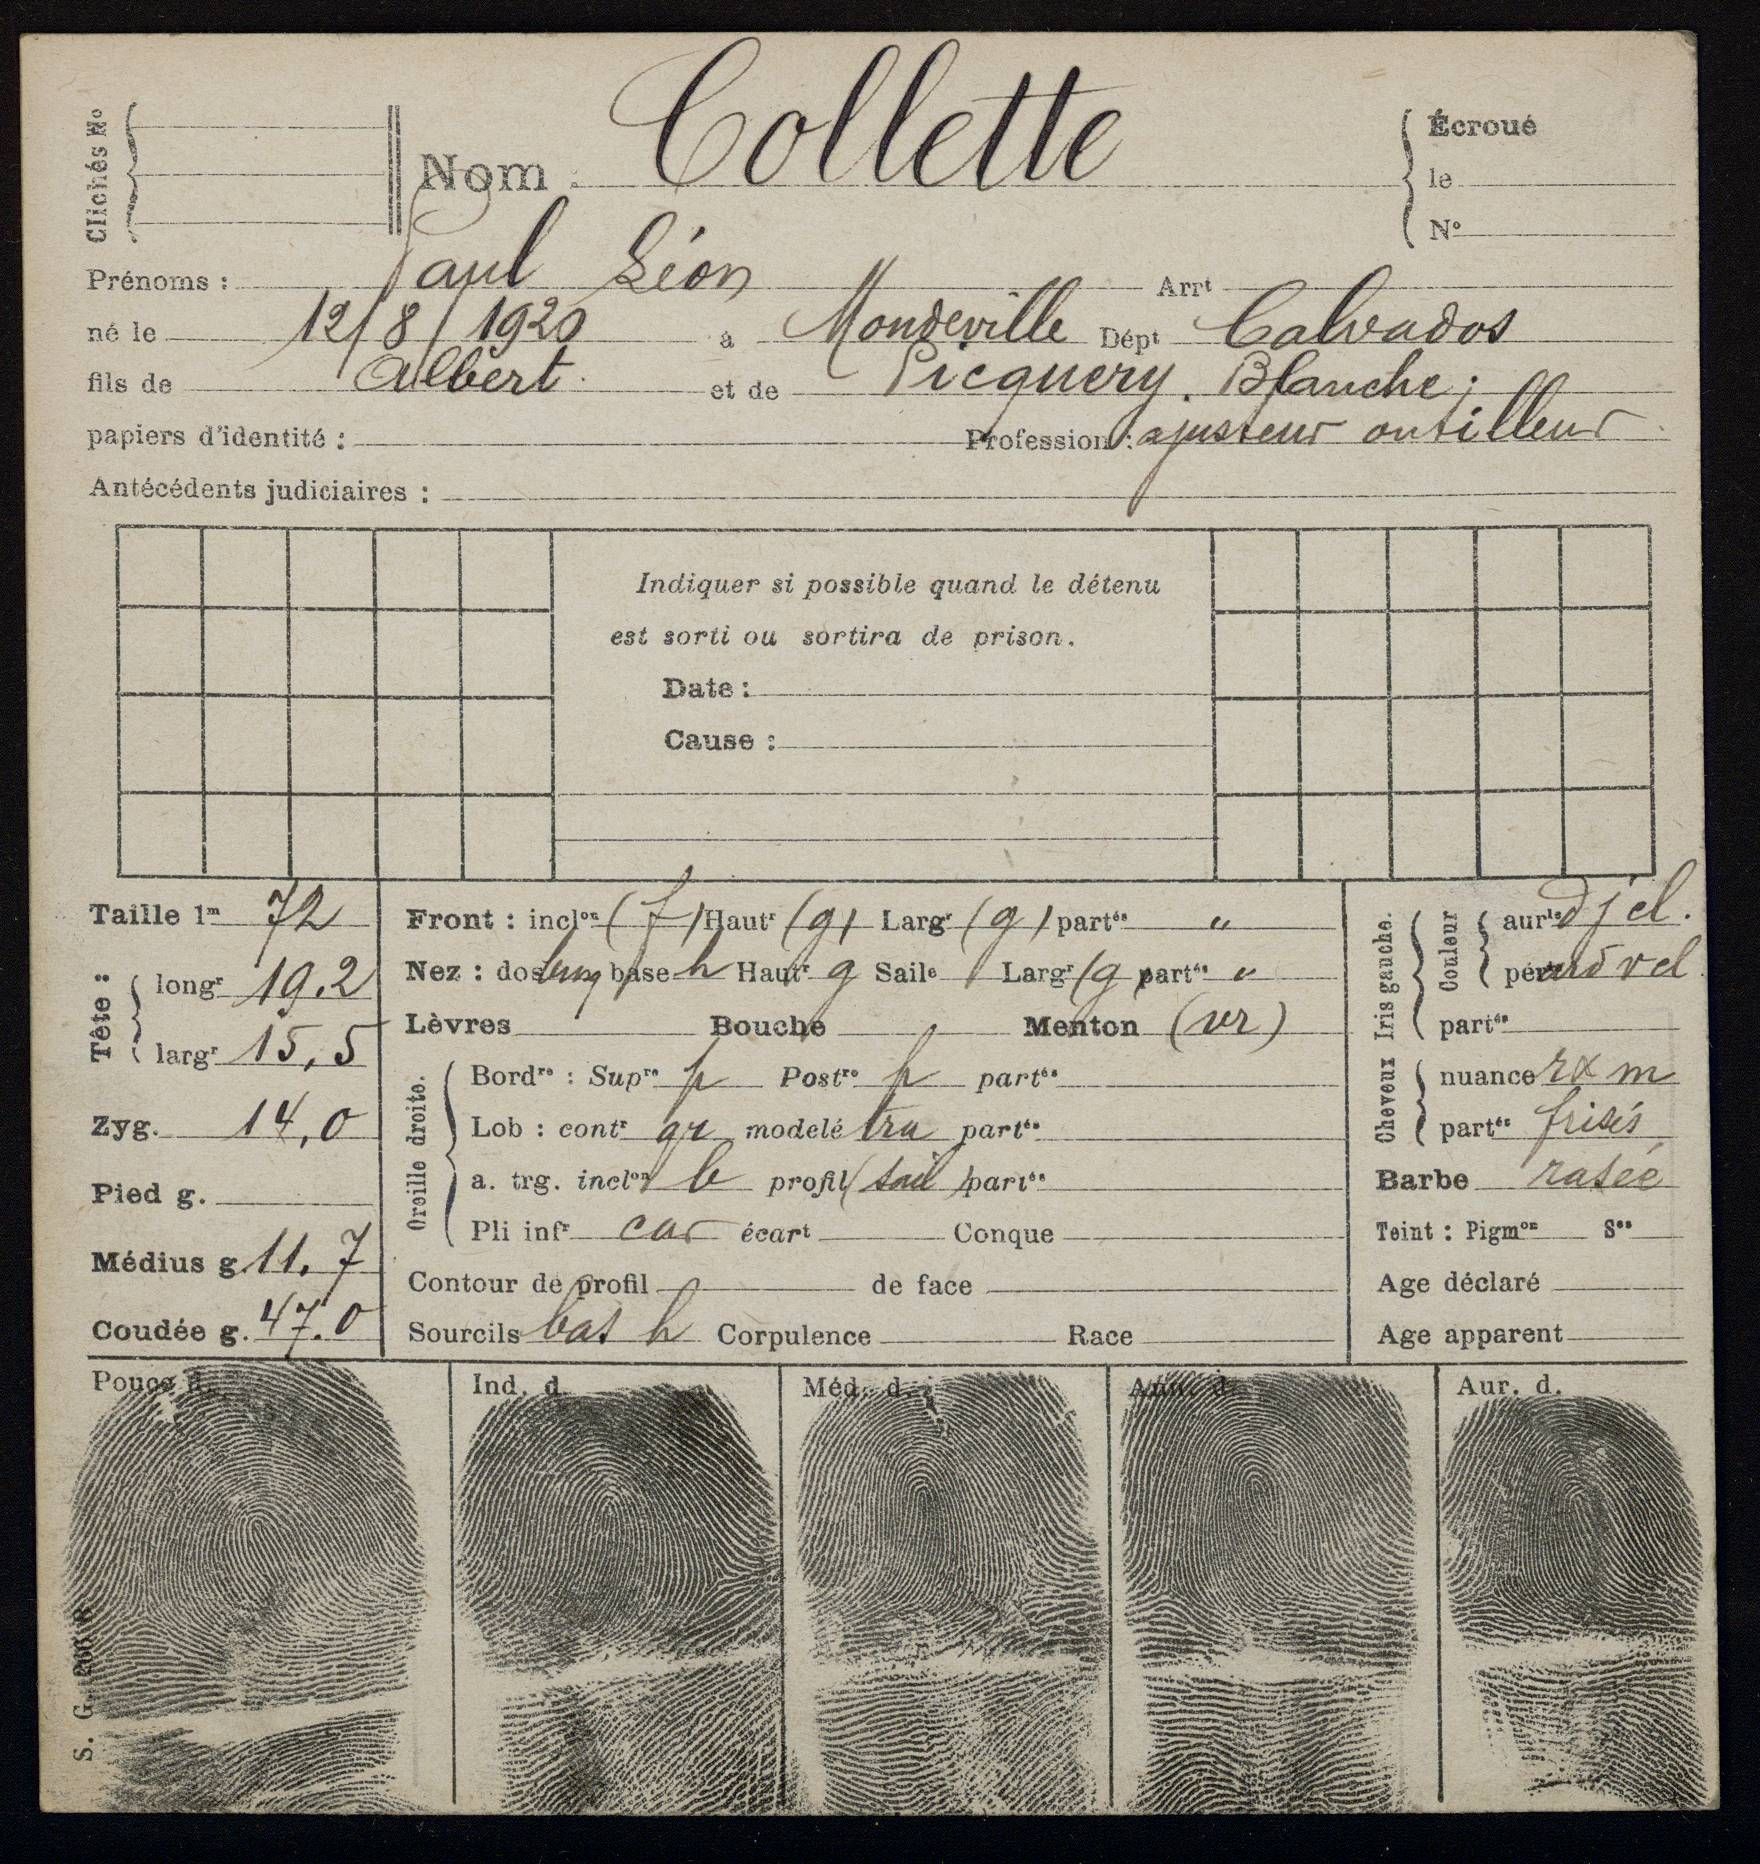 Clichés Nº
Nom : Collette
Écroué
le
Nº
Prénoms : Paul Léon Arrt
né le 12/8/1920 à Mondeville Dépt Calvados
fils de Albert et de Picquery. Blanche;
papiers d'identité : Profession : ajusteur outilleur
Antécédents judiciaires :
Indiquer si possible quand le détenu
est sorti ou sortira de prison.
Date :
Cause :
Taille 1m 72
Tête :
longr 19.2
largr 15,5
Zyg. 14,0
Pied g.
Médius g 11.7
Coudée g. 47.0
Front : inclon (f) Hautr (g) Largr (g) partés "
Nez : dos base h Hautr g Saile Largr (g) partés "
Lèvres Bouche Menton (vr)
Oreille droite.
Bordre : Supre p Postre p partés
Lob : contr gr modelé tra partés
a. trg. inclon b profil (sail) partés
Pli infr car écart Conque
Contour de profil de face
Sourcils bas h Corpulence Race
Iris gauche.
Couleur
aurle dj cl.
pér vcl
partés
Cheveux
nuance rx m
partés frisés
Barbe rasée
Teint : Pigmon Son
Age déclaré
Age apparent
Pouce d. Ind. d. Méd. d. Ann. d. Aur. d.
S. G. 266 R